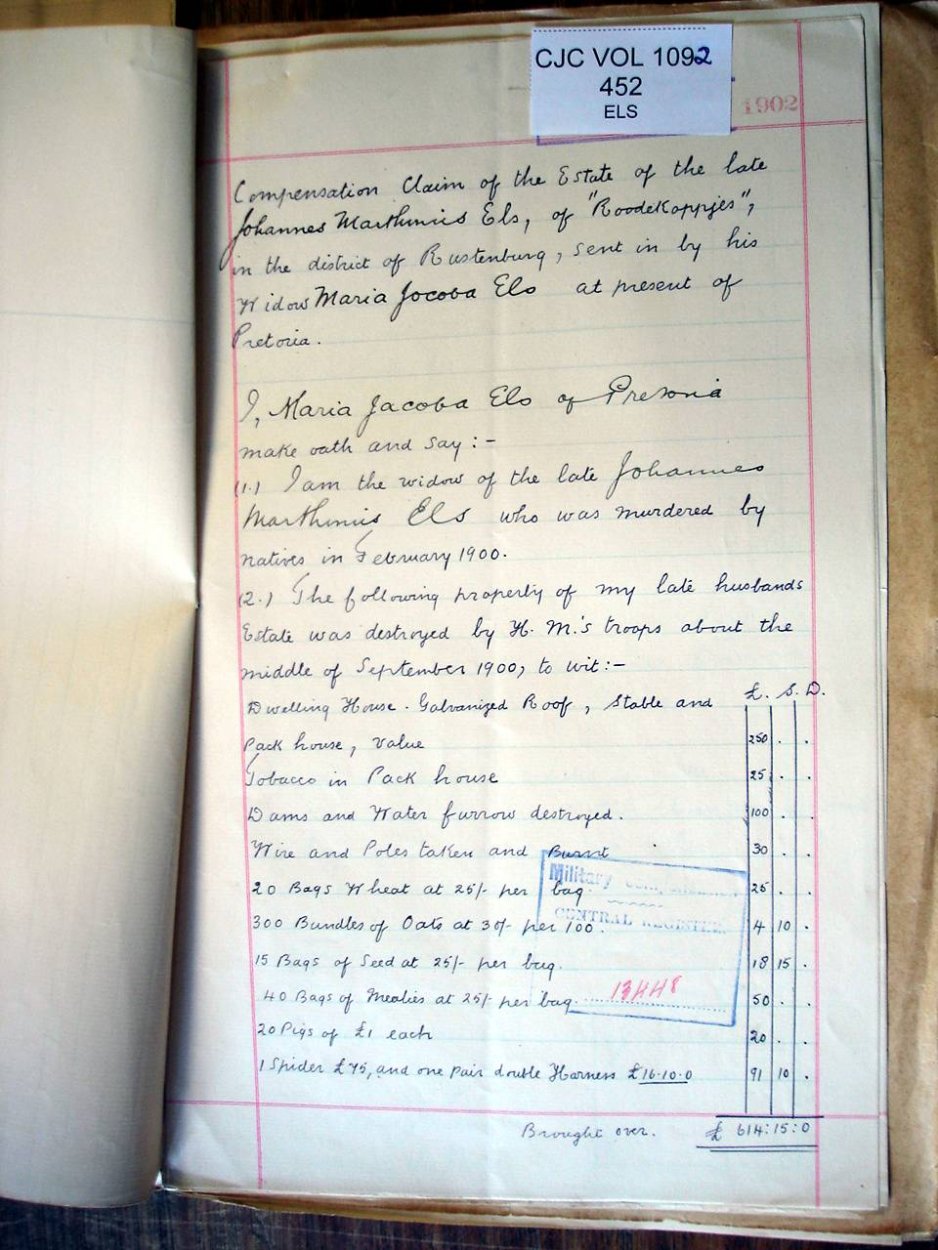 CJC VOL 1092
452
ELS
1902
Compensation Claim of the Estate of the late
Johannes Marthinus Els, of "Roodekoppjes",
in the district of Rustenburg, sent in by his
Widow Maria Jocoba Els at present of
Pretoria.
I, Maria Jacoba Els of Pretoria
make oath and say :-
(1.) I am the widow of the late Johannes
Marthinus Els who was murdered by
natives in February 1900.
(2.) The following property of my late husbands
Estate was destroyed by H. M.'s troops about the
middle of September 1900, to wit:-
£. S. D.
Dwelling House. Galvanized Roof, Stable and
Pack house, value 250 . .
Tobacco in Pack house 25 . .
Dams and Water furrow destroyed. 100 . .
Wire and Poles taken and Burnt 30 . .
20 Bags Wheat at 25/- per bag. 25 . .
300 Bundles of Oats at 30/- per 100. 4 10 .
15 Bags of Seed at 25/- per bag. 18 15 .
40 Bags of Mealies at 25/- per bag 50 . .
20 Pigs of £1 each 20 . .
1 Spider £75, and one pair double Harness £16.10.0 91 10 .
Brought over. £ 614:15:0
Military
CENTRAL REGISTER
13448